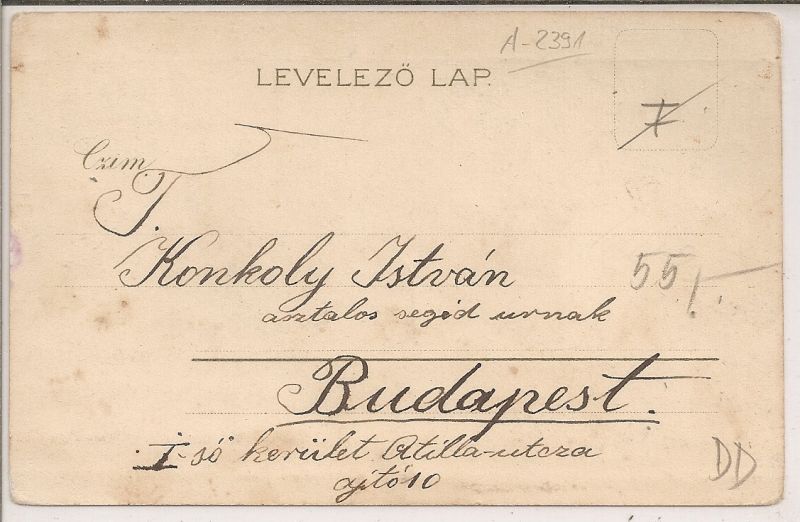 A-2391
LEVELEZŐ LAP.
Czim
T.
Konkoly István
55
asztalos segéd urnak
Budapest.
I-ső kerület Atilla-utcza
ajtó 10
DD